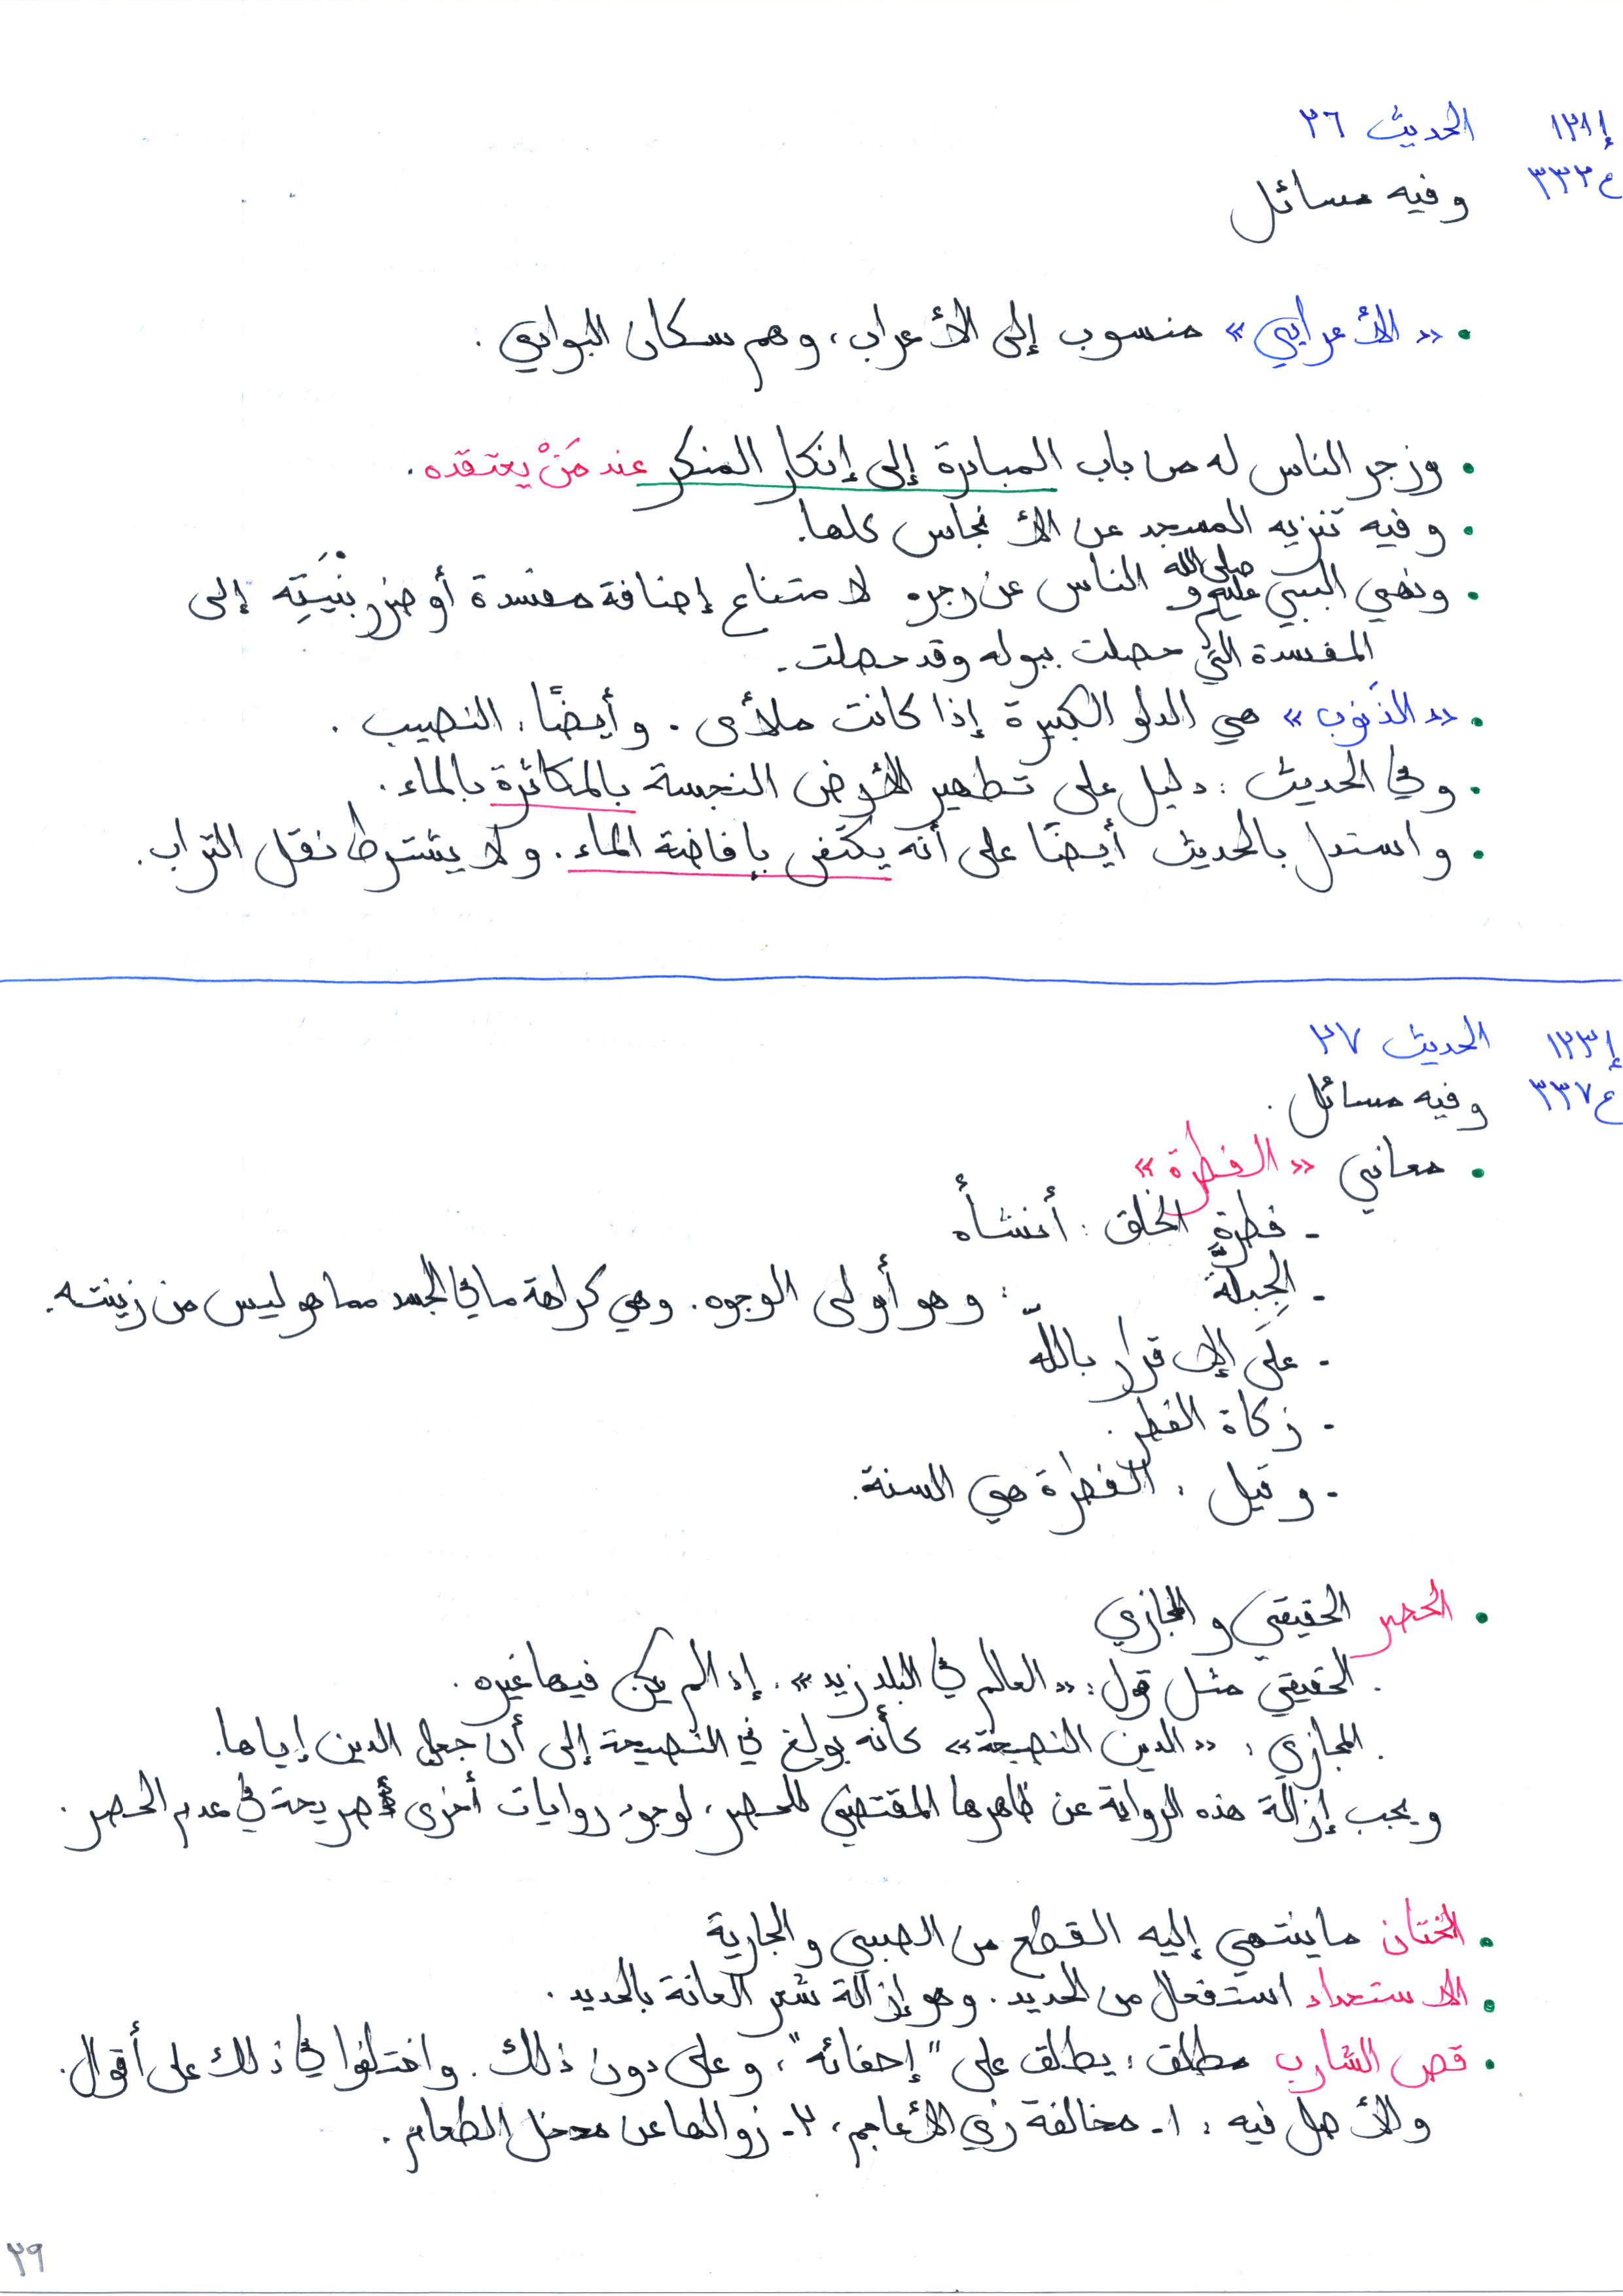 إ١٣١ الحديث ٢٦
ع٣٣٢ وفيه مسائل
• «الأعرابي» منسوب إلى الأعراب، وهم سكان البوادي.
• وزجر الناس له من باب المبادرة إلى إنكار المنكر عند مَنْ يعتقده.
• وفيه تنزيه المسجد عن الأنجاس كلها.
• ونهي النبي صلى الله عليه و الناس عن زجره لامتناع إضافة مفسدة أو ضرر بنيَتِه إلى
المفسدة التي حصلت ببوله وقد حصلت.
• «الذَنوب» هي الدلو الكبيرة إذا كانت ملأى. وأيضًا: النصيب.
• وفي الحديث: دليل على تطهير الأرض النجسة بالمكاثرة بالماء.
• واستدل بالحديث أيضًا على أنه يكتفى بإفاضة الماء. ولا يشترط نقل التراب.
إ١٣٣ الحديث ٢٧
ع٣٣٧ وفيه مسائل.
• معاني «الفطرة»
- فطرة الخلق: أنشأه
- الجِبِلَّة: وهو أولى الوجوه. وهي كراهة ما في الجسد مما هو ليس من زينته.
- علَى الإقرار باللّه
- زكاة الفطر.
- وقيل: الفطرة هي السنة.
• الحصر الحقيقي والمجازي
. الحقيقي مثل قول: «العالم في البلد زيد». إذا لم يكن فيها غيره.
. المجازي: «الدين النصيحة» كأنه بولغ في النصيحة إلى أن جعل الدين إياها.
ويجب إزالة هذه الرواية عن ظاهرها المقتضي للحصر، لوجود روايات أخرى صريحة في عدم الحصر.
• الختان ما ينتهي إليه القطع من الصبي والجارية
• الاستحداد استفعال من الحديد. وهو إزالة شعر العانة بالحديد.
• قص الشارب مطلق: يطلق على "إحفائه"، وعلى دون ذلك. واختلفوا في ذلك على أقوال.
والأصل فيه: ١- مخالفة زي الأعاجم، ٢- زوالها عن مدخل الطعام.
٢٩